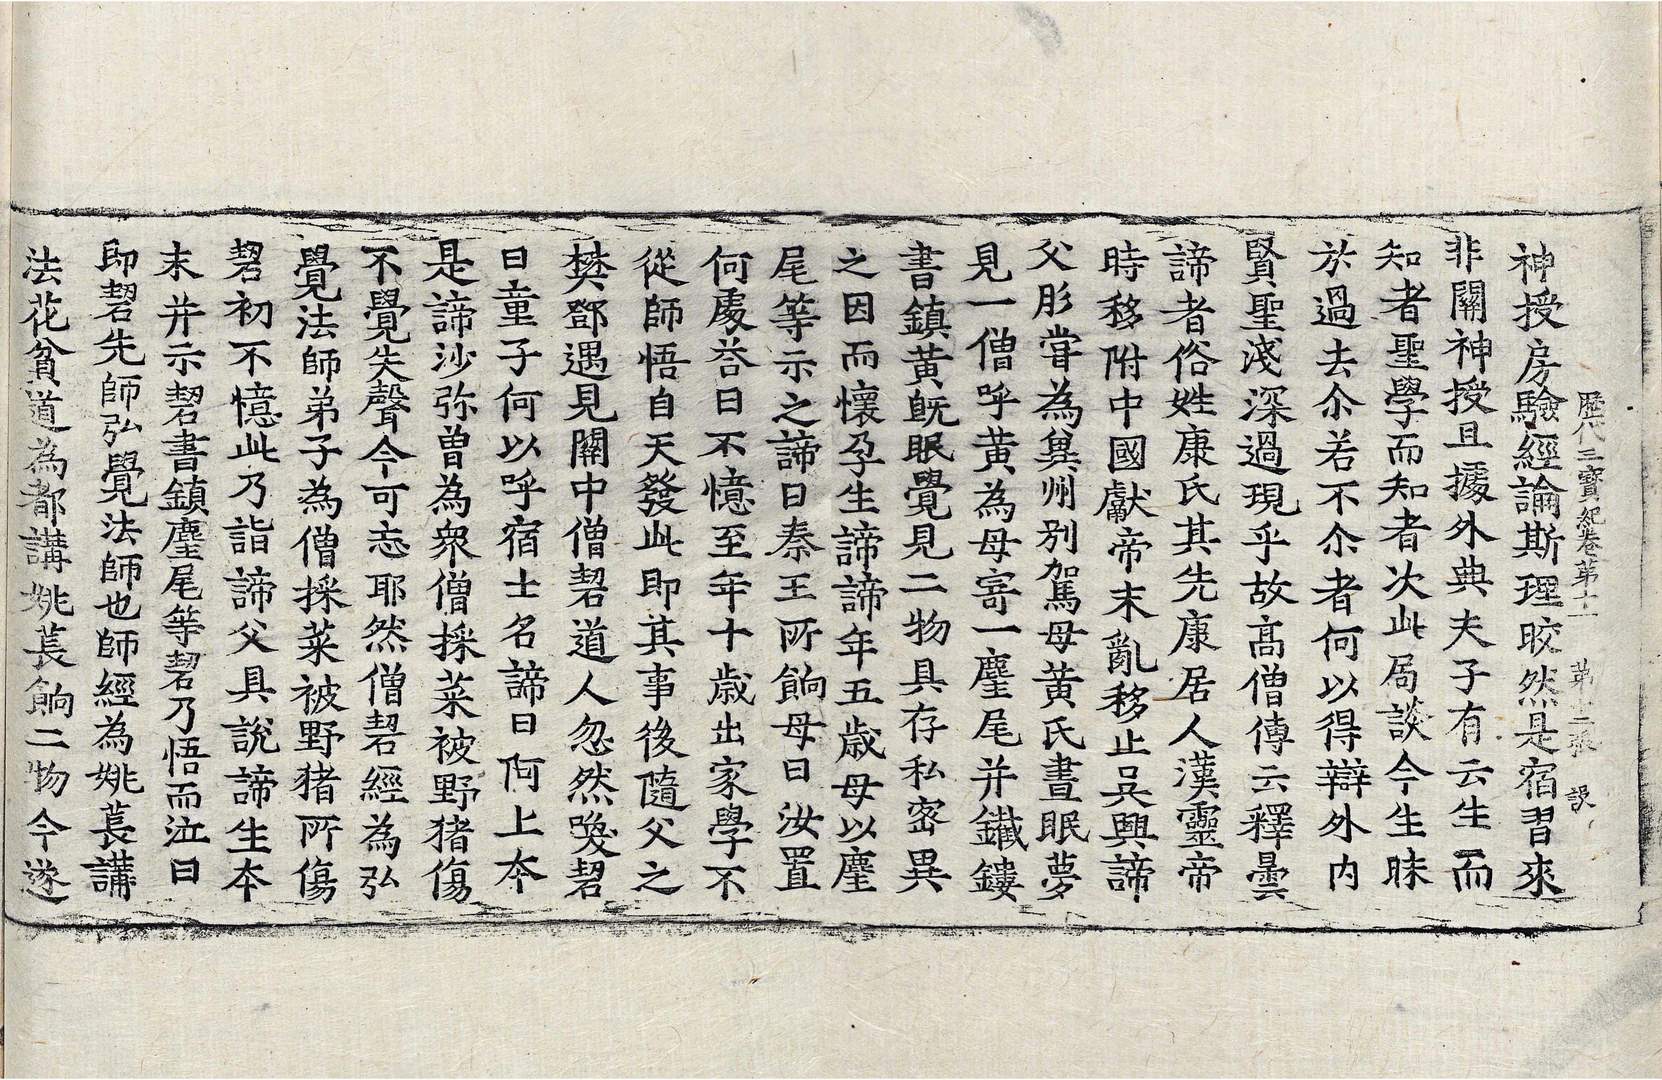 歷代三寶紀卷第十一 第十二張 誤
神授房驗經論斯理皎然是宿習來
非關神授且據外典夫子有云生而
知者聖學而知者次此局談今生昧
於過去尒若不尒者何以得辯外內
賢聖淺深過現乎故高僧傳云釋曇
諦者俗姓康氏其先康居人漢靈帝
時移附中國獻帝末亂移止吳興諦
父肜甞為兾州別駕母黃氏晝眠夢
見一僧呼黃為母寄一麈尾并鐵鏤
書鎮黃旣眠覺見二物具存私密異
之因而懷孕生諦諦年五歲母以麈
尾等示之諦曰秦王所餉母曰汝置
何處荅曰不憶至年十歲出家學不
從師悟自天發此即其事後隨父之
樊鄧遇見關中僧䂮道人忽然喚䂮
曰童子何以呼宿士名諦曰阿上本
是諦沙弥曾為衆僧採菜被野猪傷
不覺失聲今可忘耶然僧䂮經為弘
覺法師弟子為僧採菜被野猪所傷
䂮初不憶此乃詣諦父具說諦生本
末并示䂮書鎮麈尾等䂮乃悟而泣曰
即䂮先師弘覺法師也師經為姚萇講
法花貧道為都講姚萇餉二物今遂